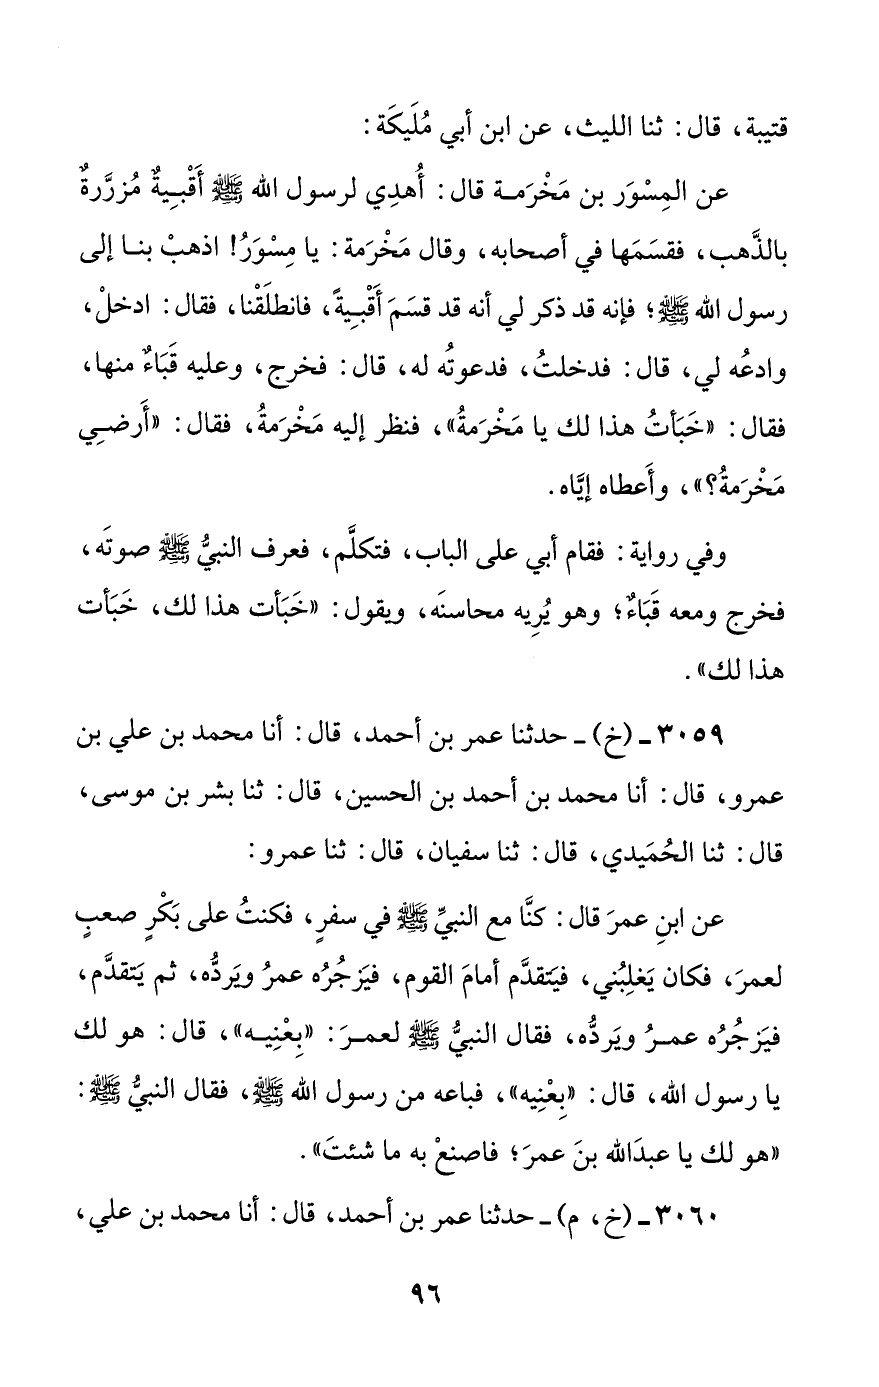 قتيبة، قال: ثنا الليث، عن ابن أبي مُلَيكَة:
عن المِسْوَر بن مَخْرَمـة قال: أُهدِي لرسول الله ﷺ أَقْبِـيةٌ مُزرَّرةٌ
بالذَّهب، فقسَمَها في أصحابه، وقال مَخْرَمة: يا مِسْوَرُ! اذهبْ بنـا إلى
رسول الله ﷺ؛ فإنه قد ذكر لي أنه قد قسَمَ أَقْبِـيةً، فانطلَقْنا، فقال: ادخلْ،
وادعُه لي، قال: فدخلتُ، فدعوتُه له، قال: فخرج، وعليه قَبَاءٌ منها،
فقال: «خَبَأتُ هذا لك يا مَخْرَمةُ»، فنظر إليه مَخْرَمةُ، فقال: «أَرضـي
مَخْرَمةُ؟»، وأَعطاه إيَّاه.
وفي رواية: فقام أبي على الباب، فتكلَّم، فعرف النبيُّ ﷺ صوتَه،
فخرج ومعه قَبَاءٌ؛ وهو يُرِيه محاسنَه، ويقول: «خَبَأت هذا لك، خَبَأت
هذا لك».
٣٠٥٩ ـ (خ) ـ حدثنا عمر بن أحمد، قال: أنا محمد بن علي بن
عمرو، قال: أنا محمد بن أحمد بن الحسين، قال: ثنا بشر بن موسى،
قال: ثنا الحُمَيدي، قال: ثنا سفيان، قال: ثنا عمرو:
عن ابنِ عمرَ قال: كنَّا مع النبيِّ ﷺ في سفرٍ، فكنتُ على بَكْرٍ صعبٍ
لعمرَ، فكان يَغلِبُني، فيَتقدَّم أمامَ القوم، فيَزجُرُه عمرُ ويَردُّه، ثم يَتقدَّم،
فيَزجُرُه عمـرُ ويَردُّه، فقال النبيُّ ﷺ لعمـرَ: «بِعْنِيـه»، قال: هو لك
يا رسول الله، قال: «بِعْنِيه»، فباعه من رسول الله ﷺ، فقال النبيُّ ﷺ:
«هو لك يا عبدَالله بنَ عمرَ؛ فاصنعْ به ما شئتَ».
٣٠٦٠ ـ (خ، م) ـ حدثنا عمر بن أحمد، قال: أنا محمد بن علي،
٩٦